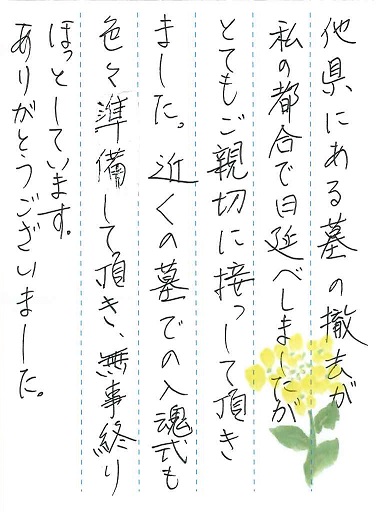 他県にある墓の撤去が
私の都合で日延べしましたが
とてもご親切に接っして頂き
ました。近くの墓での入魂式も
色々準備して頂き、無事終り
ほっとしています。
ありがとうございました。